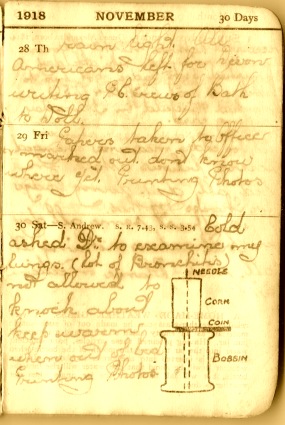 1918 NOVEMBER 30 Days
28 Th
Americans left for
writing P.C. views of Bath
to Doll.
29 Fri Papers taken to office
marked out dont know
where yet. Printing Photos
30 Sat—S. Andrew. S. R. 7.43, S. S. 3.54 Cold
asked Dr. to examine my
lungs. (lot of Bronchitis)
not allowed to
knock about
keep warm
when out of bed
Printing Photos
NEEDLE
CORK
COIN
BOBBIN